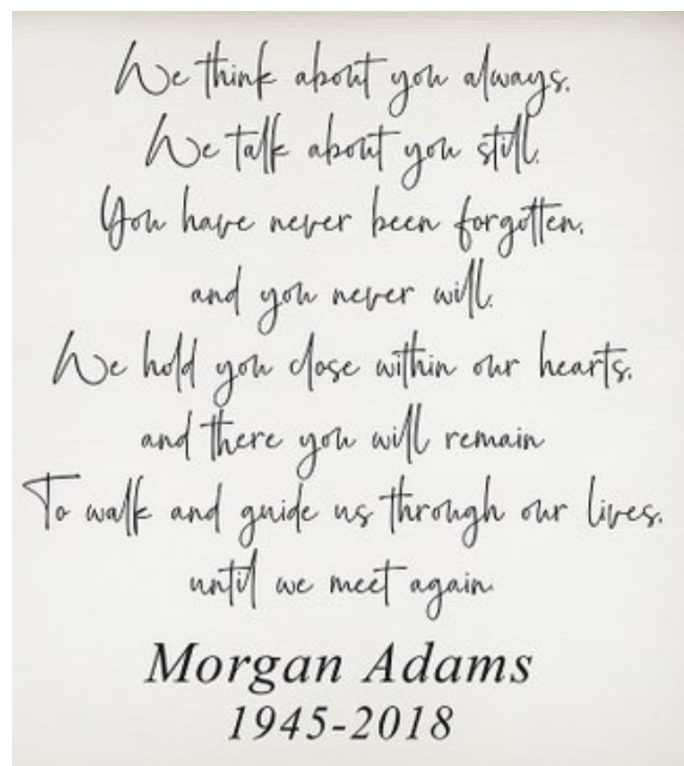 We think about you always.
We talk about you still.
You have never been forgotten,
and you never will.
We hold you close within our hearts,
and there you will remain
To walk and guide us through our lives,
until we meet again.
Morgan Adams
1945-2018